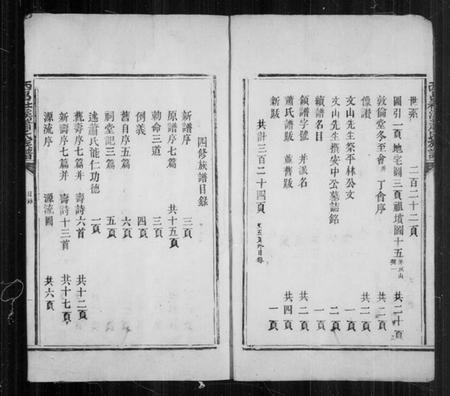 四修族譜目錄
新譜序 三頁
原譜序七篇 共十五頁
勅命三道 三頁
例義 四頁
舊自序五篇 六頁
祠堂記三篇 五頁
述蕭氏能仁功德 一頁
舊壽序七篇并 壽詩六首 共十二頁
新壽序七篇并 壽詩十三首 共十七頁
源流序 源流圖 共六頁
世系 二百二十二頁
圖引一頁 地宅圖三頁 祖墳圖十五 共二十頁
敦倫堂冬至會 丁會序 共二頁
像讃 共二頁
文山先生祭平林公文 一頁
文山先生撰安中公墓誌銘 二頁
績譜名目 一頁
領譜字號 并派名 共二頁
蕭氏譜跋 舊跋 共四頁
新跋 一頁
共計三百二十四頁